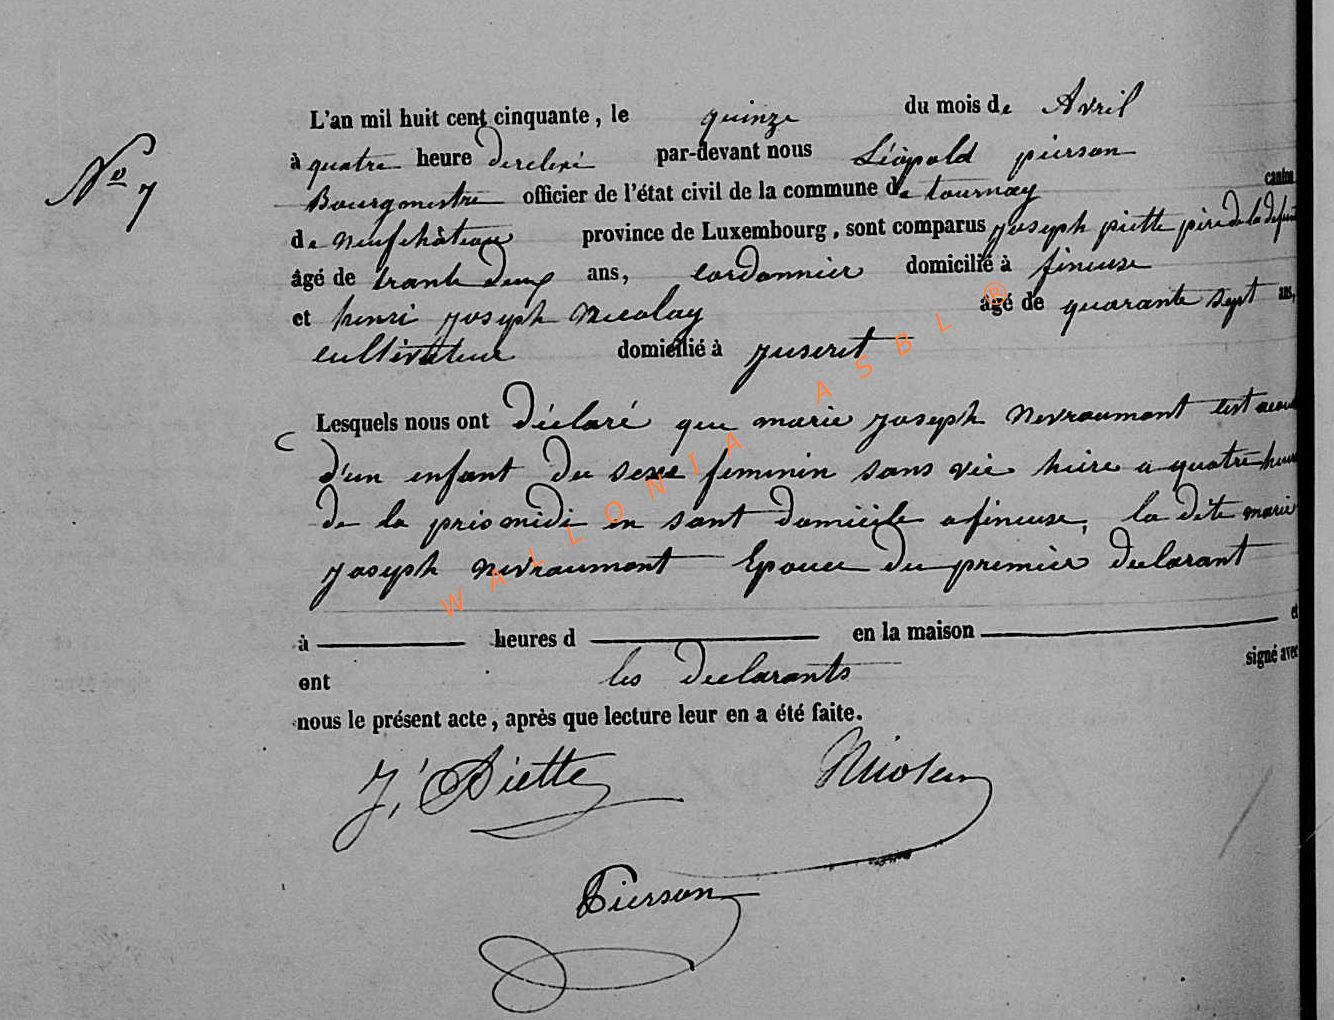 L'an mil huit cent cinquante, le quinze du mois de Avril
N° 7
à quatre heure derelevé par-devant nous Léopold pierson
Bourgmestre officier de l'état civil de la commune de tournay canton
de Neufchâteau province de Luxembourg, sont comparus joseph piette père de la defunt
âgé de trante deux ans, cordonnier domicilié à fineuse
et henri joseph Nicolay âgé de quarante sept ans,
cultivateur domicilié à juseret
Lesquels nous ont déclaré que marie joseph Nevraumont est
d'un enfant du sexe feminin sans vie hiere a quatre heure
de la pris midi en sont domicile a fineuse, la dite marie
joseph nevraumont Epouce du premier declarant
à heures d en la maison et
ont les declarants signé avec
nous le présent acte, après que lecture leur en a été faite.
J, Piette Nicolay
Pierson
WALLONIA ASBL ®